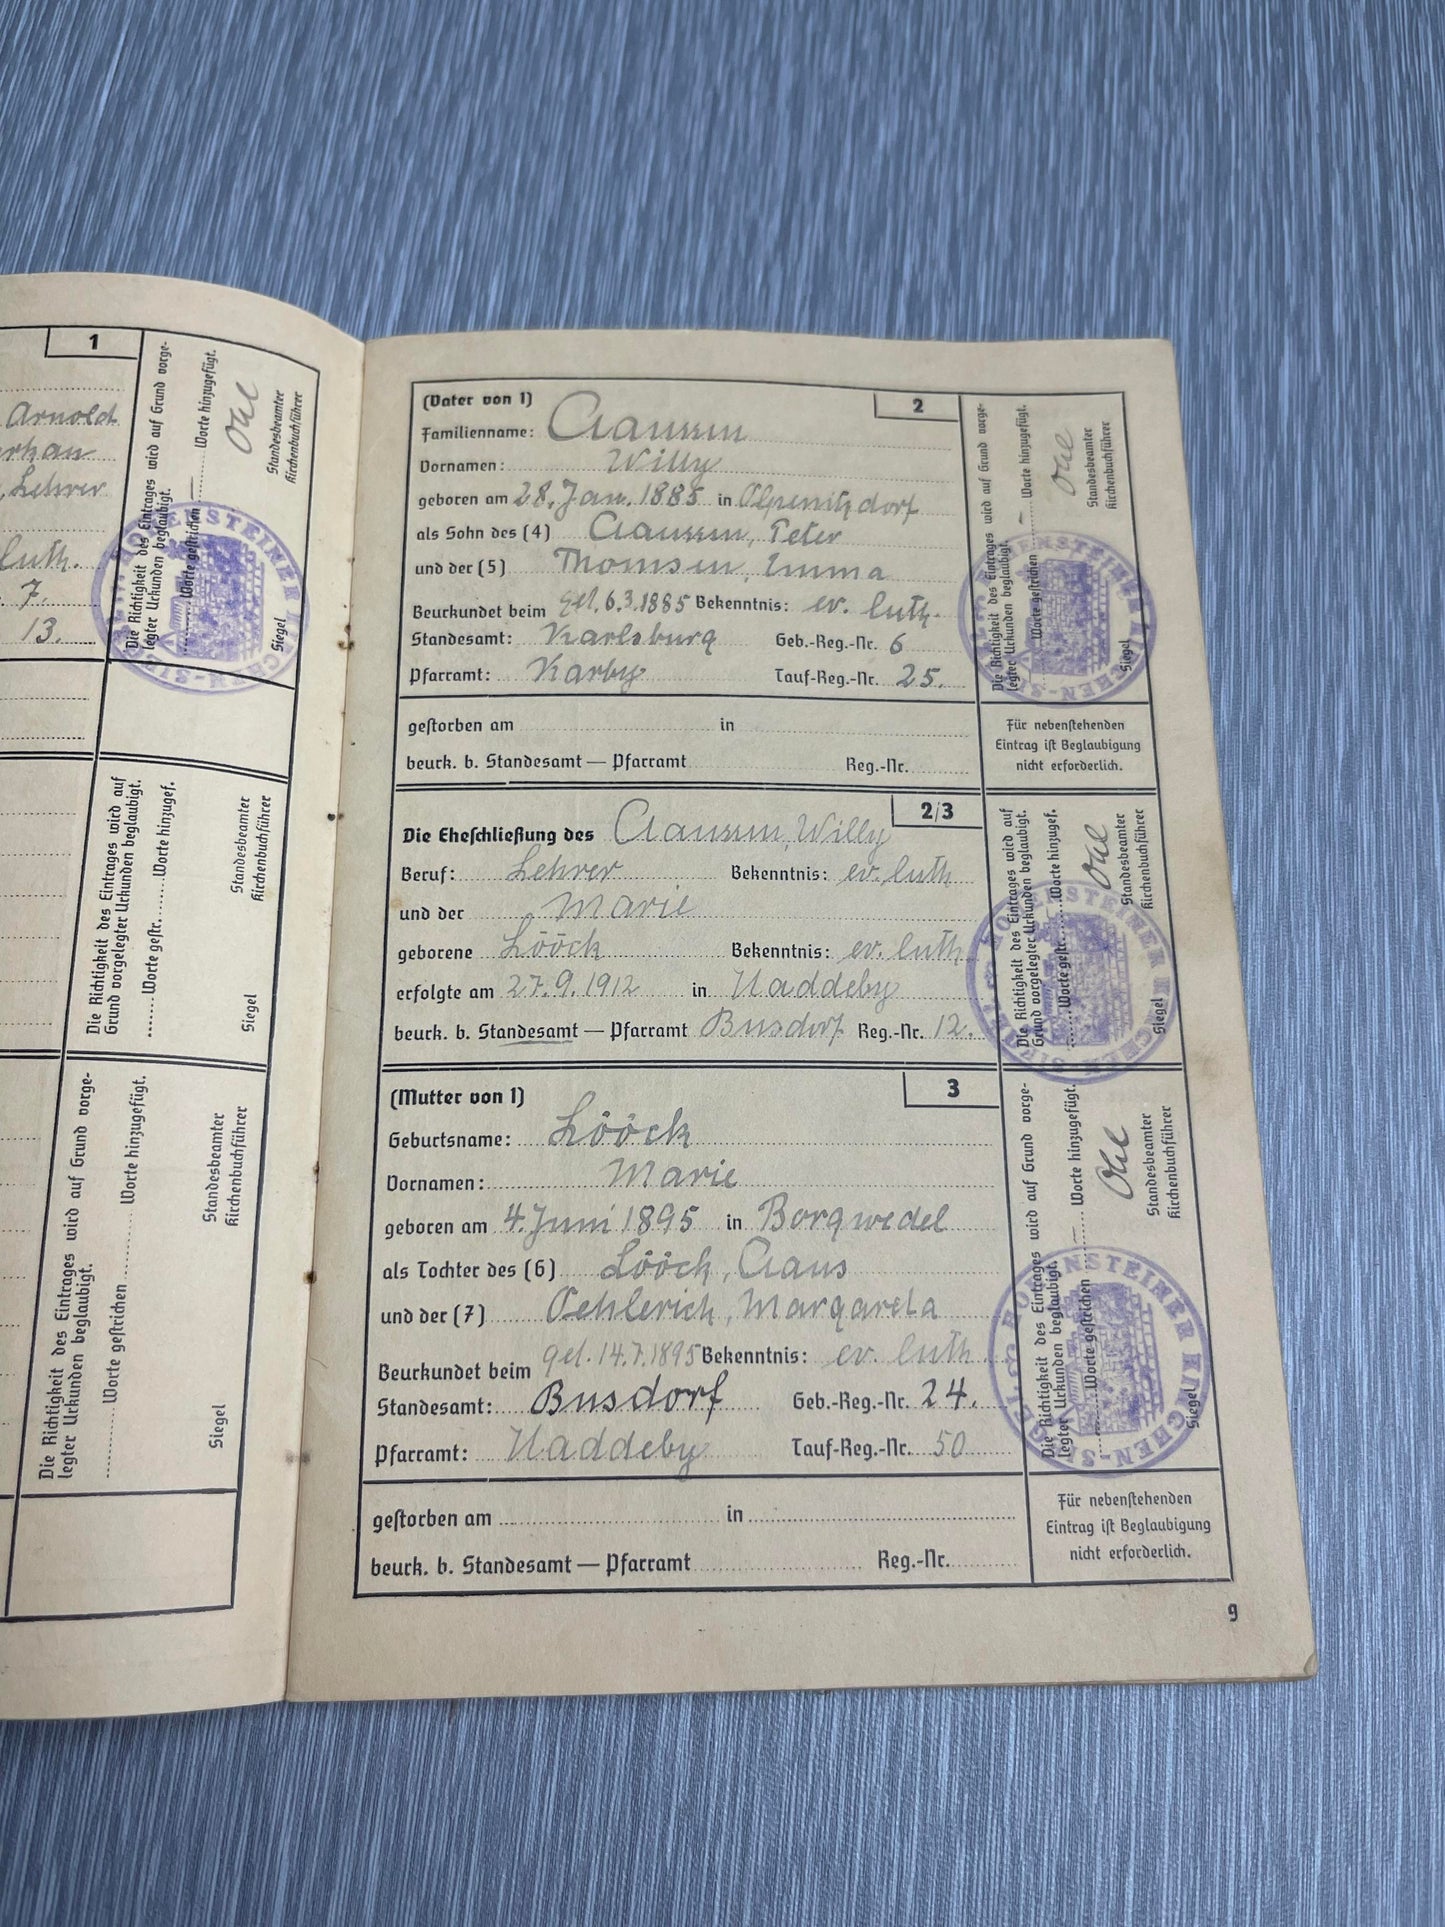 1
Arnold
Lehrer
luth.
7.
13.
Die Richtigkeit des Eintrages wird auf Grund vorge-
legter Urkunden beglaubigt.
Worte gestrichen — Worte hinzugefügt.
Standesbeamter
Kirchenbuchführer
Siegel
Die Richtigkeit des Eintrages wird auf
Grund vorgelegter Urkunden beglaubigt.
Worte gestr. Worte hinzugef.
Standesbeamter
Kirchenbuchführer
Siegel
Die Richtigkeit des Eintrages wird auf Grund vorge-
legter Urkunden beglaubigt.
Worte gestrichen Worte hinzugefügt.
Standesbeamter
Kirchenbuchführer
Siegel
(Vater von 1) 2
Familienname: Claussen
Vornamen: Willy
geboren am 28. Jan. 1885 in Olpenitzdorf
als Sohn des (4) Claussen, Peter
und der (5) Thomsen, Emma
Beurkundet beim get. 6.3.1885 Bekenntnis: ev. luth.
Standesamt: Karlsburg Geb.-Reg.-Nr. 6
Pfarramt: Karby Tauf-Reg.-Nr. 25.
gestorben am in
beurk. b. Standesamt — Pfarramt Reg.-Nr.
Die Richtigkeit des Eintrages wird auf Grund vorge-
legter Urkunden beglaubigt.
Worte gestrichen — Worte hinzugefügt.
Standesbeamter
Kirchenbuchführer
Siegel
Für nebenstehenden
Eintrag ist Beglaubigung
nicht erforderlich.
2/3
Die Eheschließung des Claussen, Willy
Beruf: Lehrer Bekenntnis: ev. luth
und der Marie
geborene Lööck Bekenntnis: ev. luth
erfolgte am 27.9.1912 in Haddeby
beurk. b. Standesamt — Pfarramt Busdorf Reg.-Nr. 12.
Die Richtigkeit des Eintrages wird auf
Grund vorgelegter Urkunden beglaubigt.
Worte gestr. Worte hinzugef.
Standesbeamter
Kirchenbuchführer
Siegel
(Mutter von 1) 3
Geburtsname: Lööck
Vornamen: Marie
geboren am 4. Juni 1895 in Borgwedel
als Tochter des (6) Lööck, Claus
und der (7) Oehlerich, Margareta
Beurkundet beim get. 14.7.1895 Bekenntnis: ev. luth
Standesamt: Busdorf Geb.-Reg.-Nr. 24.
Pfarramt: Haddeby Tauf-Reg.-Nr. 50
gestorben am in
beurk. b. Standesamt — Pfarramt Reg.-Nr.
Die Richtigkeit des Eintrages wird auf Grund vorge-
legter Urkunden beglaubigt.
Worte gestrichen — Worte hinzugefügt.
Standesbeamter
Kirchenbuchführer
Siegel
Für nebenstehenden
Eintrag ist Beglaubigung
nicht erforderlich.
9